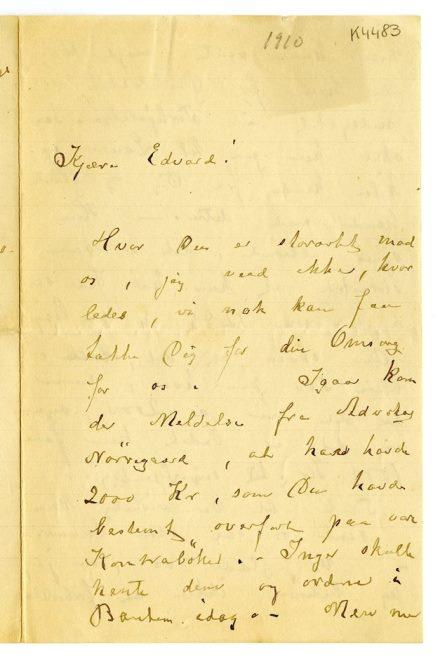 1910
K4483
Kjære Edvard!
Hvor Du er storartet mod
os, jeg veed ikke, hvor
ledes, vi nok kan faa
takke Dig for din Omsorg
for os. Igaar kom
der Meddelse fra Advokat
Nörregaard, at han havde
2000 Kr, som Du havde
bestemt, overfört paa vor
Kontraböker. - Inger skulle
hente dem og ordne i
Banken idag. - Men nu